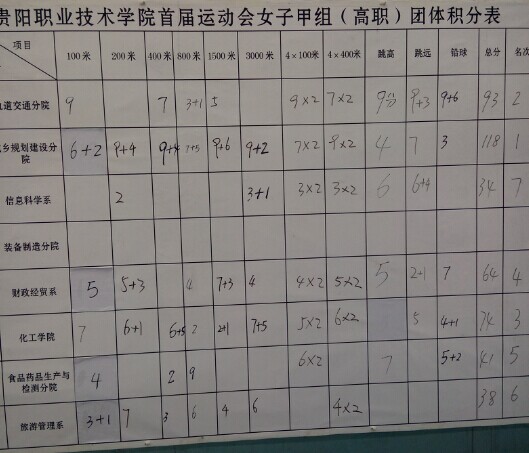 贵阳职业技术学院首届运动会女子甲组（高职）团体积分表
项目 100米 200米 400米 800米 1500米 3000米 4×100米 4×400米 跳高 跳远 铅球 总分 名次
道交通分院 9 7 3+1 5 9×2 7×2 9 9+3 9+6 93 2
乡规划建设分院 6+2 9+4 9+4 7+5 9+6 9+2 7×2 9×2 4 7 3 118 1
信息科学系 2 3+1 3×2 3×2 6 6+4 34 7
装备制造分院
财政经贸系 5 5+3 4 7+3 4 4×2 5×2 5 2+1 7 64 4
化工学院 7 6+1 6+5 2 2+1 7+5 5×2 6×2 5 4+1 74 3
食品药品生产与检测分院 4 2 9 6×2 7 5+2 41 5
旅游管理系 3+1 7 3 6 4 6 4×2 38 6